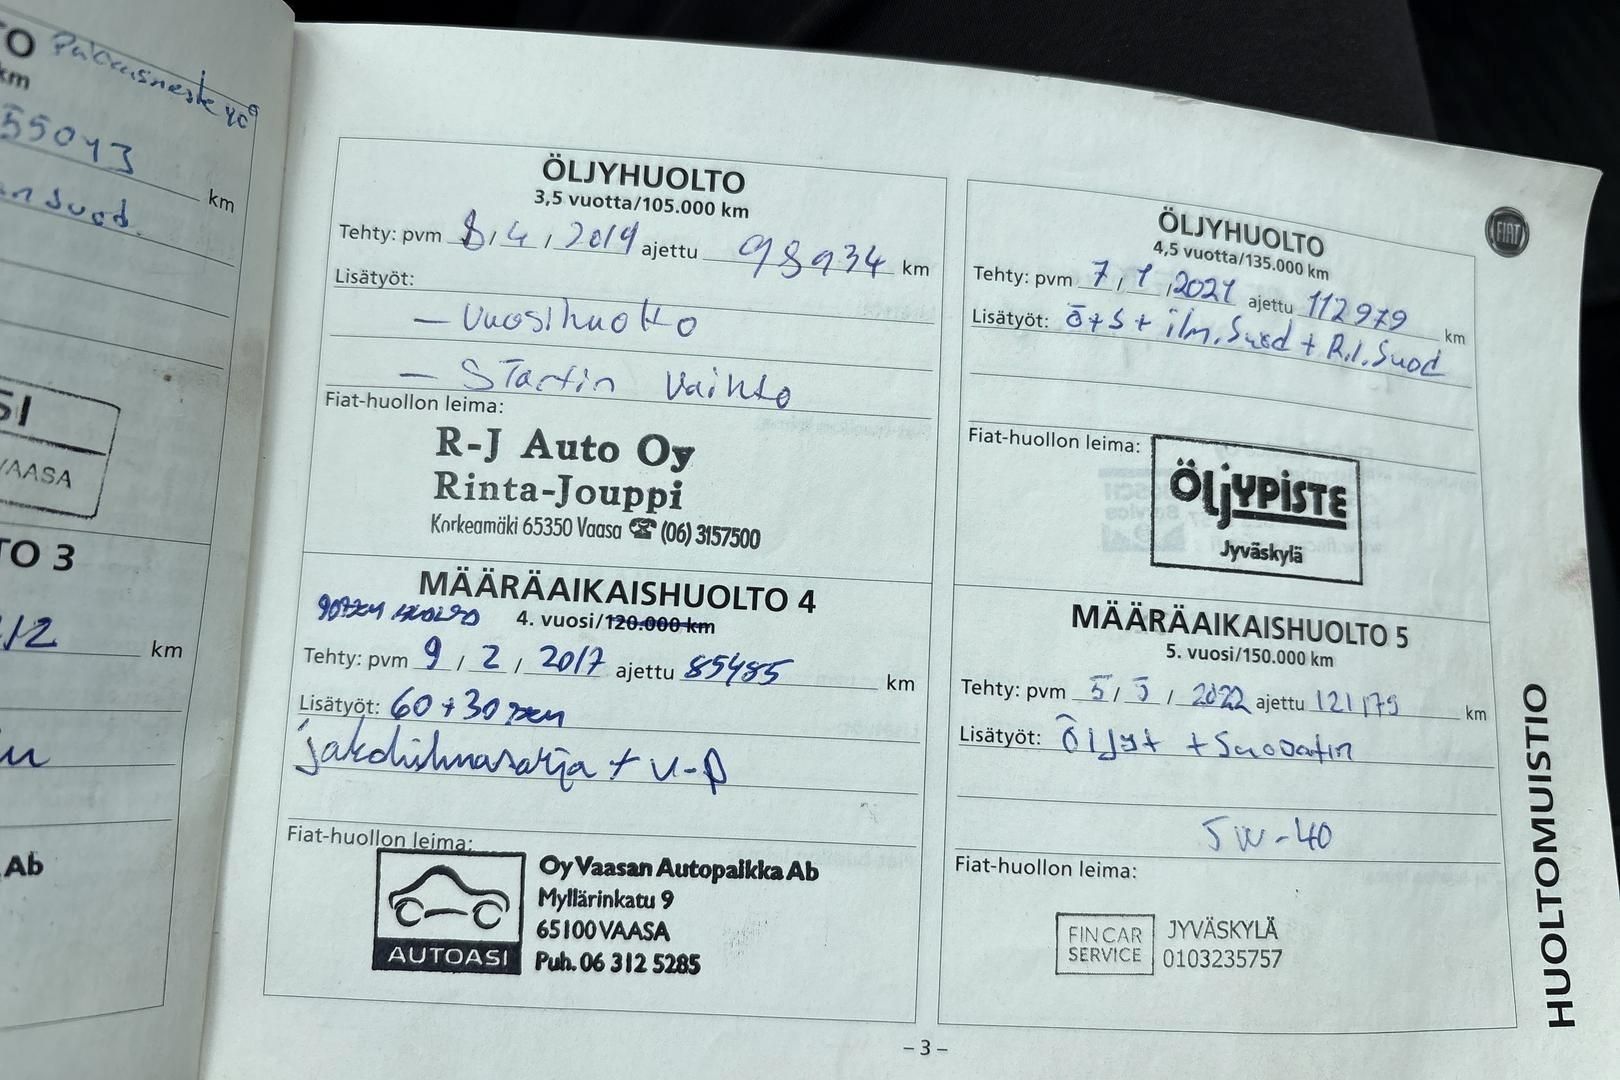 TO Pakkasneste 40°
km
55043 km
an suod.
SI
VAASA
TO 3
12 km
Ab
ÖLJYHUOLTO
3,5 vuotta/105.000 km
Tehty: pvm 8 / 4 / 2019 ajettu 98934 km
Lisätyöt:
- Vuosihuolto
- Startin vaihto
Fiat-huollon leima:
R-J Auto Oy
Rinta-Jouppi
Korkeamäki 65350 Vaasa ☎ (06) 3157500
MÄÄRÄAIKAISHUOLTO 4
90tkm HUOLTO 4. vuosi/120.000 km
Tehty: pvm 9 / 2 / 2017 ajettu 85485 km
Lisätyöt: 60+30 tkm
jakohihnasarja + v-p
Fiat-huollon leima:
AUTOASI
Oy Vaasan Autopaikka Ab
Myllärinkatu 9
65100 VAASA
Puh. 06 312 5285
ÖLJYHUOLTO
4,5 vuotta/135.000 km
Tehty: pvm 7 / 1 / 2021 ajettu 112979 km
Lisätyöt: ö+s + ilm.suod + R.i.suod
Fiat-huollon leima:
ÖLJYPISTE
Jyväskylä
MÄÄRÄAIKAISHUOLTO 5
5. vuosi/150.000 km
Tehty: pvm 5 / 5 / 2022 ajettu 121175 km
Lisätyöt: Öljyt + Suodatin
5W-40
Fiat-huollon leima:
FINCAR SERVICE
JYVÄSKYLÄ
0103235757
FIAT
HUOLTOMUISTIO
– 3 –